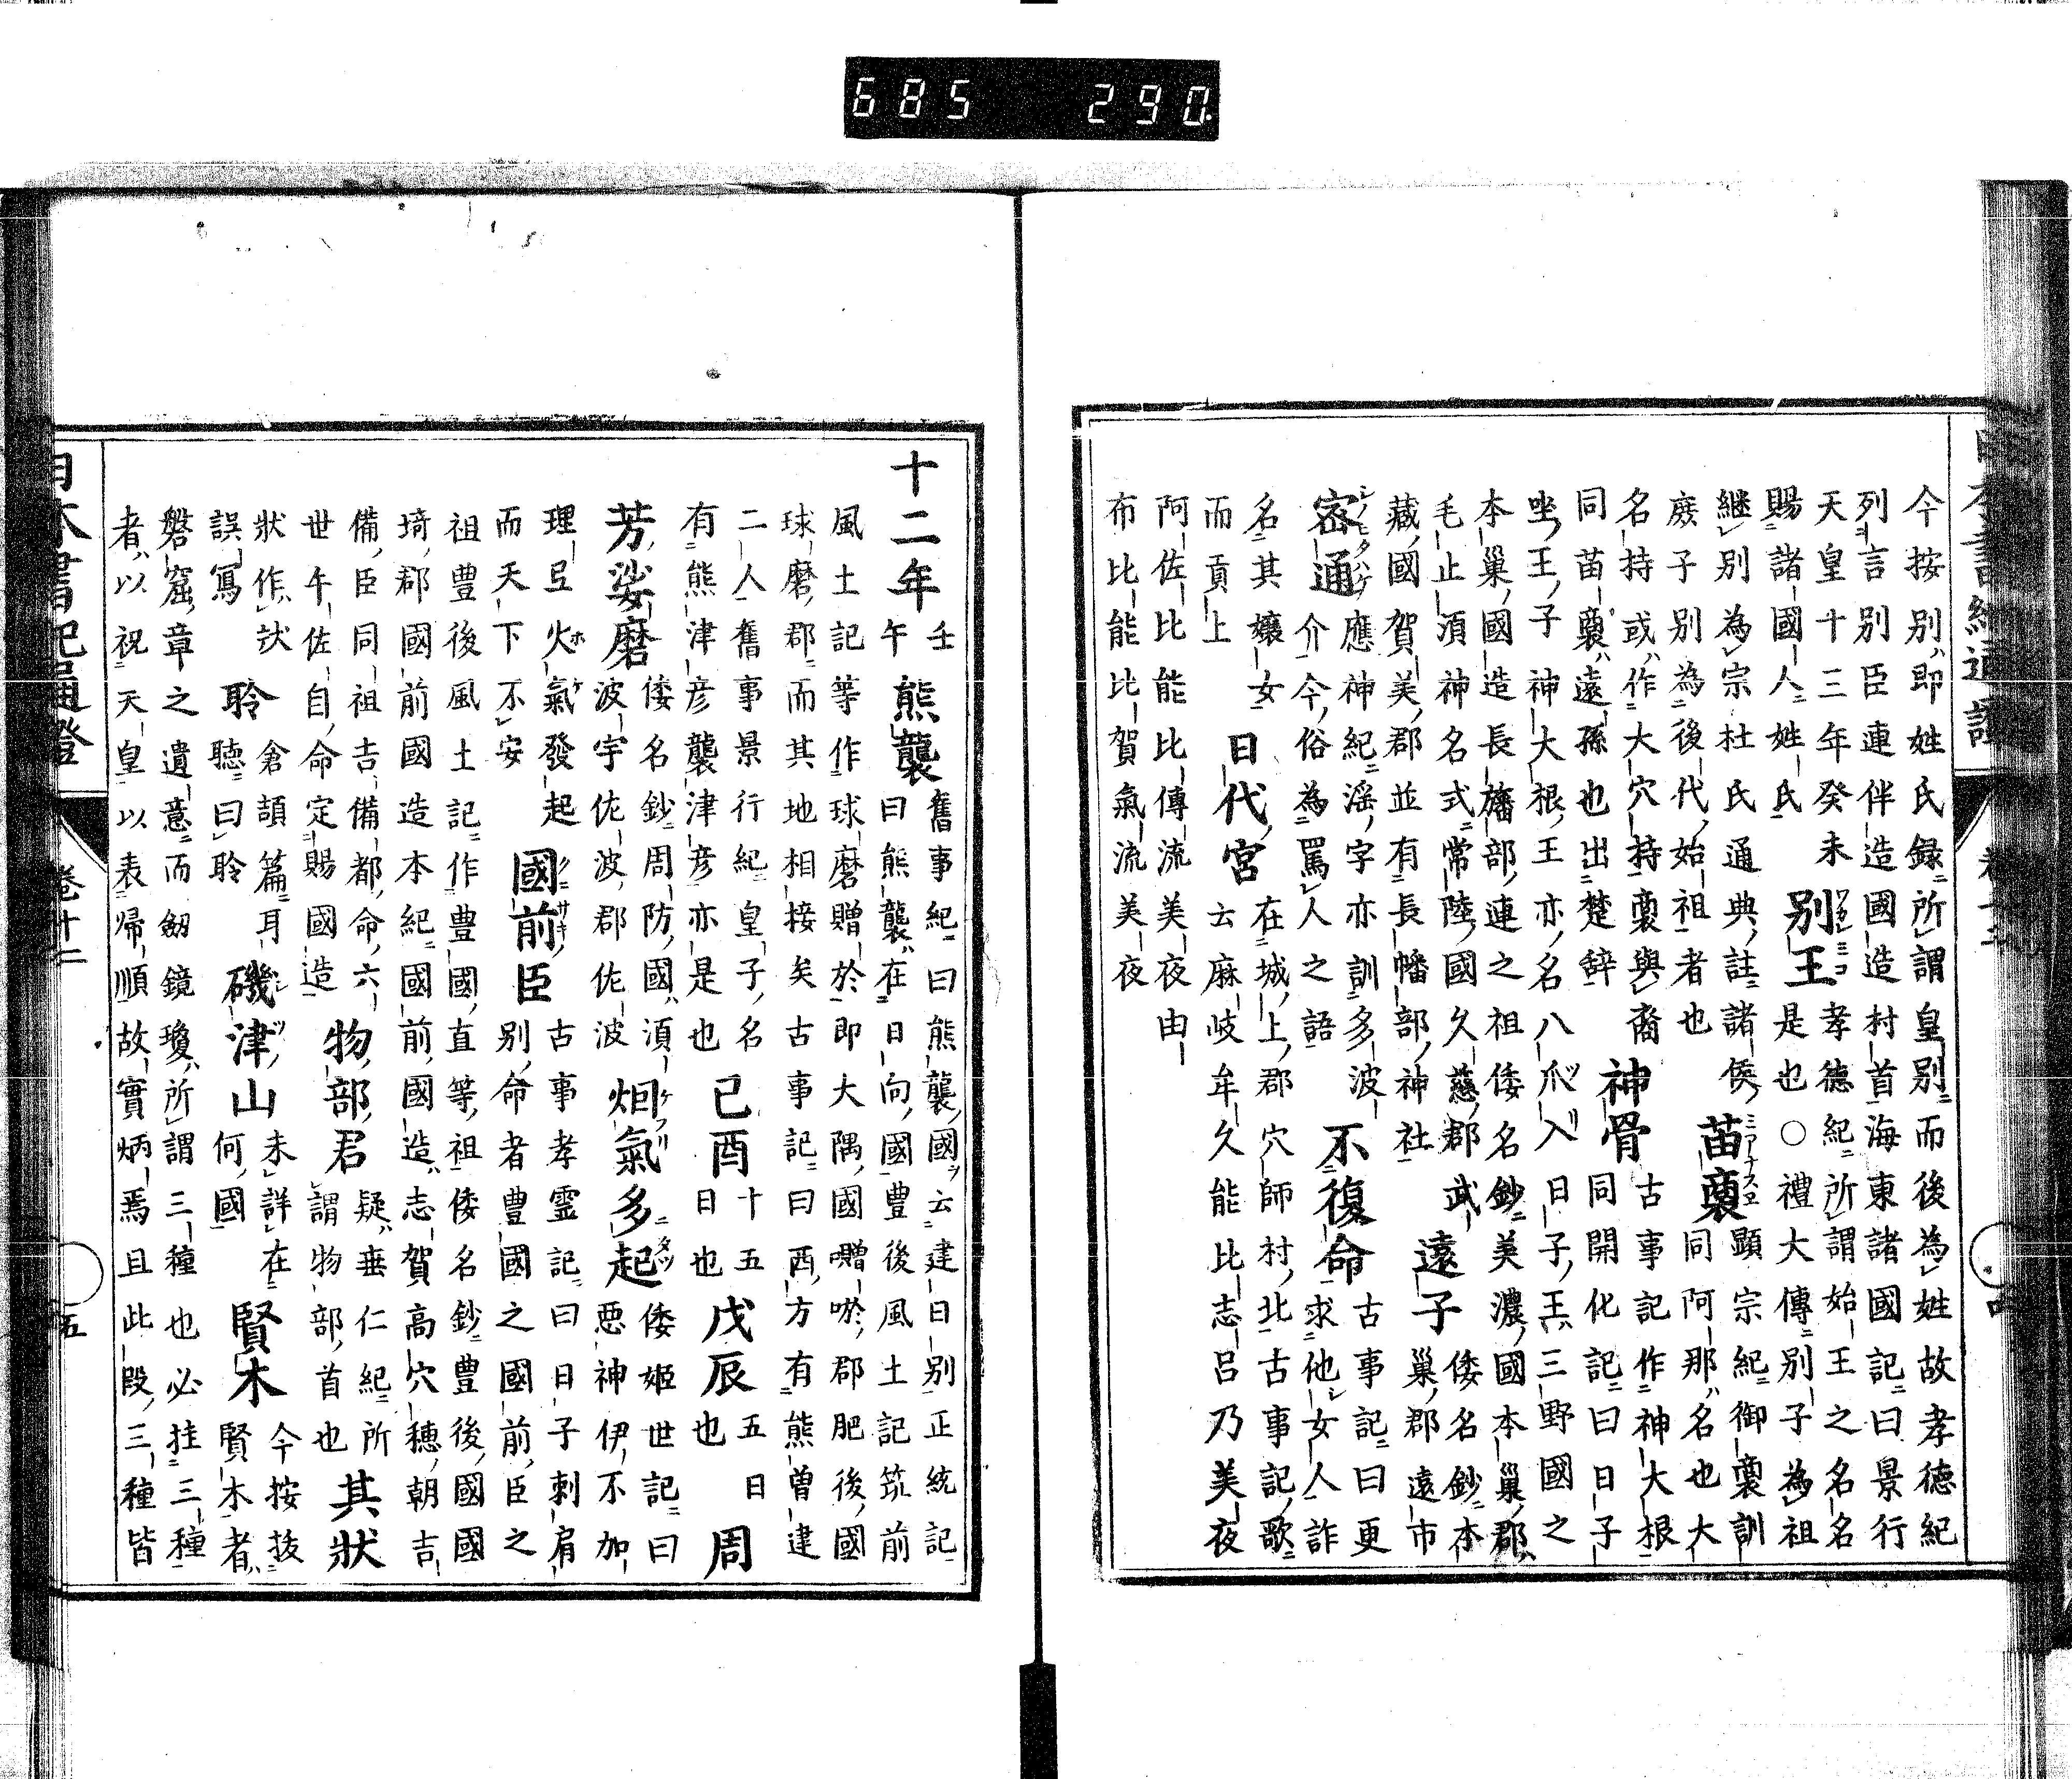 685 290
今按別即姓氏録所謂皇別而後為姓故孝徳紀
列言別臣連伴造國造村首海東諸國記曰景行
天皇十三年癸未
賜諸國人姓氏
別王
孝德紀所謂始王之名名
是也○禮大傳別子為祖
継別為宗杜氏通典註諸侯
庶子別為後代始祖者也
苗裔
顕宗紀御裔訓
同阿那名也大
名持或作大穴持裔與裔
同苗裔遠孫也出楚辞
神骨
古事記作神大根
同開化記曰日子
坐王子神大根王亦名八爪入日子王三野國之
本巣國造長幡部連之祖倭名鈔美濃國本巣郡
毛止須神名式常陸國久慈郡武
藏國賀美郡並有長幡部神社
遠子
倭名鈔本
巣郡遠市
密通
應神紀淫字亦訓多波
介今俗為罵人之語
不復命
古事記曰更
求他女人詐
名其孃女
而貢上
日代宮
在城上郡穴師村北古事記歌
云麻岐牟久能比志呂乃美夜
阿佐比能比傳流美夜由
布比能比賀氣流美夜
日本書紀通證
十二年
壬
午
熊襲
舊事紀曰熊襲國云建日別正統記
曰熊襲在日向國豊後風土記筑前
風土記等作球磨贈於即大隅國囎唹郡肥後國
球磨郡而其地相接矣古事記曰西方有熊曽建
二人舊事景行紀皇子名
有熊津彦襲津彦亦是也
己酉
十五
日也
戊辰
五日
也
周
芳娑磨
倭名鈔周防國須
波宇佐波郡佐波
烟氣多起
倭姬世記曰
悪神伊不加
理弖火氣發起
而天下不安
國前臣
古事孝霊記曰日子刺肩
別命者豊國之國前臣之
祖豊後風土記作豊國直等祖倭名鈔豊後國國
埼郡國前國造本紀國前國造志賀高穴穂朝吉
備臣同祖吉備都命六
世午佐自命定賜國造
物部君
疑垂仁紀所
謂物部首也
其狀
狀作
誤寫
聆
倉頡篇耳
聴曰聆
磯津山
未詳在
何國
賢木
今按抜
賢木者
磐窟章之遺意而劔鏡瓊所謂三種也必挂三種
者以祝天皇以表帰順故實炳焉且此段三種皆
日本書紀通證 卷十二 五